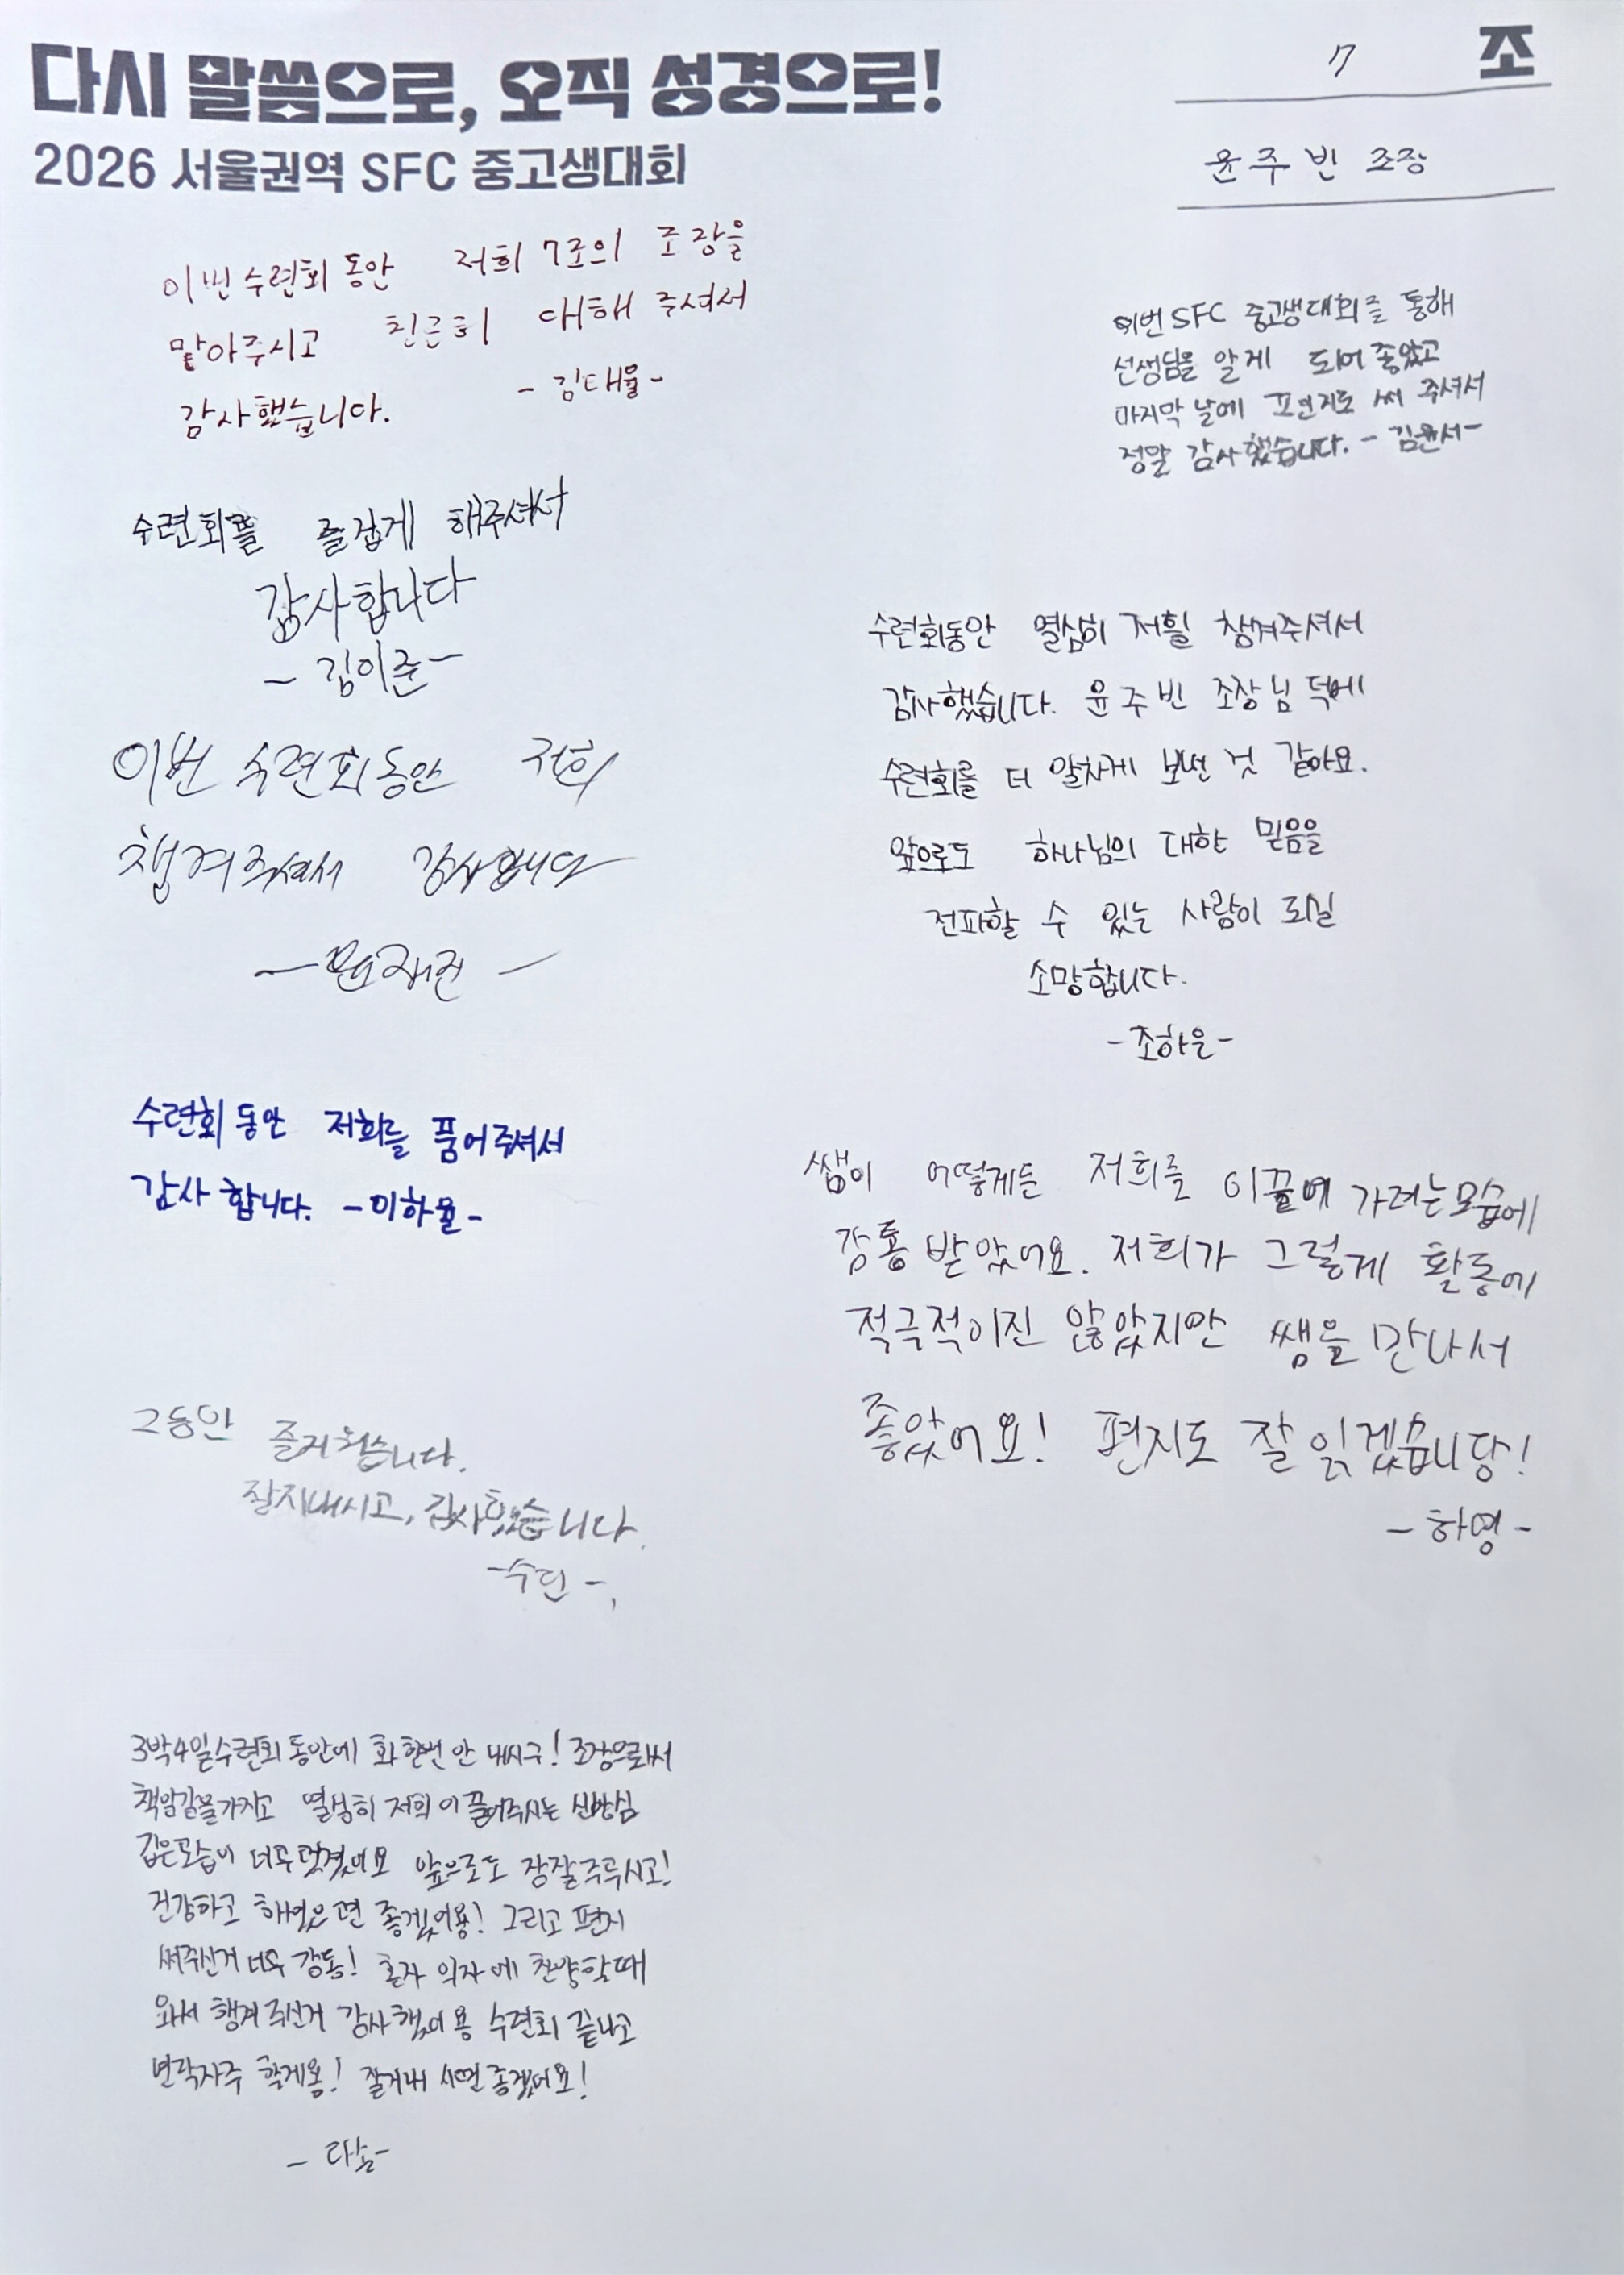 다시 말씀으로, 오직 성경으로!
2026 서울권역 SFC 중고생대회
7 조
윤주빈 조장
이번 수련회 동안 저희 7조의 조장을
맡아주시고 친근히 대해 주셔서
감사했습니다. - 김태율 -
이번 SFC 중고생대회를 통해
선생님을 알게 되어 좋았고
마지막 날에 편지도 써 주셔서
정말 감사했습니다. - 김윤서 -
수련회를 즐겁게 해주셔서
감사합니다
- 김이준 -
이번 수련회 동안 저희
챙겨주셔서 감사합니다
수련회동안 열심히 저흴 챙겨주셔서
감사했습니다. 윤주빈 조장님 덕에
수련회를 더 알차게 보낸 것 같아요.
앞으로도 하나님의 대한 믿음을
전파할 수 있는 사람이 되실
소망합니다.
- 조하은 -
수련회 동안 저희를 품어주셔서
감사 합니다. - 이하율 -
쌤이 어떻게든 저희를 이끌에 가려는 모습에
감동 받았어요. 저희가 그렇게 활동에
적극적이진 않았지만 쌤을 만나서
좋았어요! 편지도 잘 읽겠습니당!
- 하영 -
그동안 즐거웠습니다.
잘지내시고, 감사했습니다.
- 수민 -
3박4일수련회 동안에 화 한번 안 내시구! 조장으로써
책임감을가지고 열심히 저희 이끌어주시는 신앙심
깊은모습이 너무 멋졌어요 앞으로도 잘주무시고!
건강하고 해복했으면 좋겠어용! 그리고 편지
써주신거 너무 감동! 혼자 의자에 찬양할때
와서 챙겨주신거 감사했어용 수련회 끝나고
연락자주 할게용! 잘지내시면 좋겠어요!
- 다솜 -